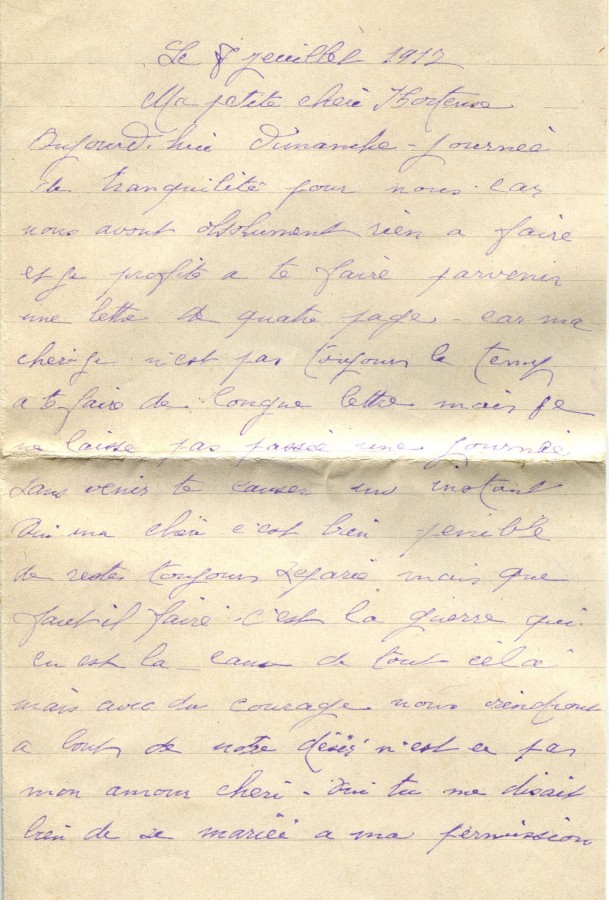 Le 8 jeuillet 1917
Ma petite cheri Hortense
Aujourd'hui Dimanche - journeé
de tranquilité pour nous - car
nous avont absolument rien a faire
et je profite a te faire parvenir
une lettre de quatre page - car ma
cheri je n'est pas toujours le temp
a te faire de longue lettre mais je
ne laisse pas passée une journée
sans venir te causer un instant
Oui ma cheri c'est bien penible
de restes toujours separé mais que
faut il faire c'est la guerre qui
en est la cause de tout cela
mais avec du courage nous viendront
a bout de notre désir n'est ce pas
mon amour cheri - Oui tu me disait
bien de se mariée a ma permission